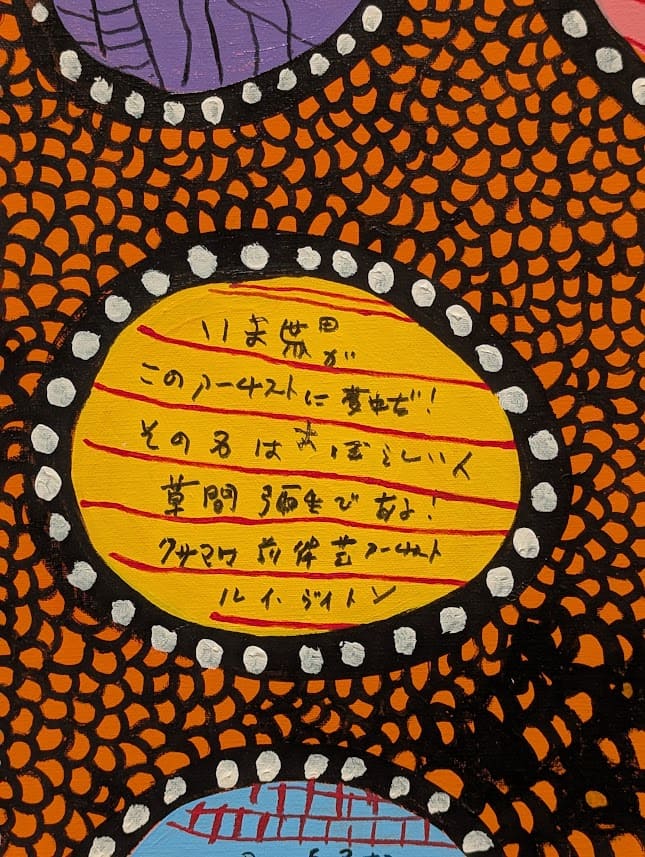 いま世界が
このアーチストに夢中だ!
その名はすばらしい人
草間弥生であよ!
クサマハ前衛芸アーチスト
ルイ・ヴィトン